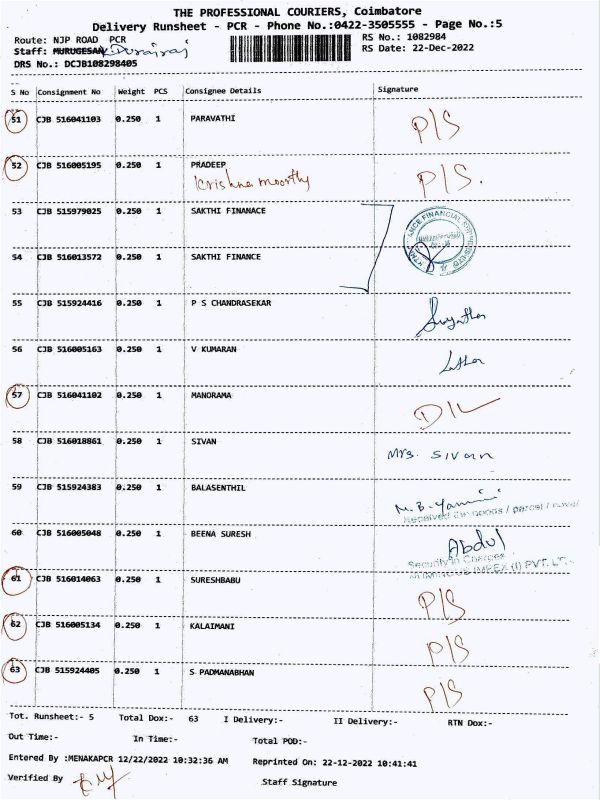 THE PROFESSIONAL COURIERS, Coimbatore
Delivery Runsheet - PCR - Phone No.:0422-3505555 - Page No.:5
Route: NJP ROAD PCR RS No.: 1082984
Staff: MURUGESAN Durairaj RS Date: 22-Dec-2022
DRS No.: DCJB108298405
S No Consignment No Weight PCS Consignee Details Signature
51 CJB 516041103 0.250 1 PARAVATHI P/S
52 CJB 516005195 0.250 1 PRADEEP P/S.
Krishna moorthy
53 CJB 515979025 0.250 1 SAKTHI FINANACE
54 CJB 516013572 0.250 1 SAKTHI FINANCE
55 CJB 515924416 0.250 1 P S CHANDRASEKAR
56 CJB 516005163 0.250 1 V KUMARAN Latha
57 CJB 516041102 0.250 1 MANORAMA D/L
58 CJB 516018861 0.250 1 SIVAN Mrs. SIVAN
59 CJB 515924383 0.250 1 BALASENTHIL M.B-Yamini
Received the goods / parcel /
60 CJB 516005048 0.250 1 BEENA SURESH Abdul
Security In Charge
IMPEX (I) PVT. LT
61 CJB 516014063 0.250 1 SURESHBABU P/S
62 CJB 516005134 0.250 1 KALAIMANI P/S
63 CJB 515924405 0.250 1 S PADMANABHAN P/S
Tot. Runsheet:- 5 Total Dox:- 63 I Delivery:- II Delivery:- RTN Dox:-
Out Time:- In Time:- Total POD:-
Entered By :MENAKAPCR 12/22/2022 10:32:36 AM Reprinted On: 22-12-2022 10:41:41
Verified By Staff Signature